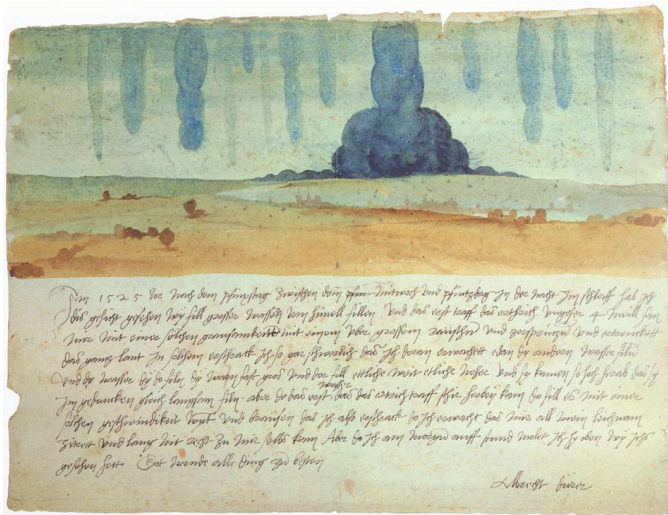 Im 1525 Jor nach dem pfinxstag zwischen dem Mitwoch und pfintzdag in der nacht im schlaff hab ich
dis gesicht gesehen wy fill grosser wassern vom himell fillen Und das erst traff das erthrich ungefer 4 meill fan
mir mit einer solchen grausamkeitt mit einem uber grossem raüschn und zersprützn und ertrenckett
das gannz lant In solchem erschrack ich so gar schwerlich das ich doran erwachett edan dy andern wasser filn
Und dy wasser dy do filn dy warn fast gros und der fill ettliche weit etliche neher und sy kamen so hoch herab das sy
im gedancken gleich langsam filn aber do das erst wasser das das ertrich traff schir herbey kam do fill es mit einer
solchen geschwindikeit wynt und braüsen das ich also erschrack do ich erwacht das mir all mein leichnam
zitrett und lang nit recht zu mir selbs kam Aber do ich am morgen auff stund molet ich hy oben wy ichs
gesehen hett Got wende alle ding zu besten
Albrecht dürer